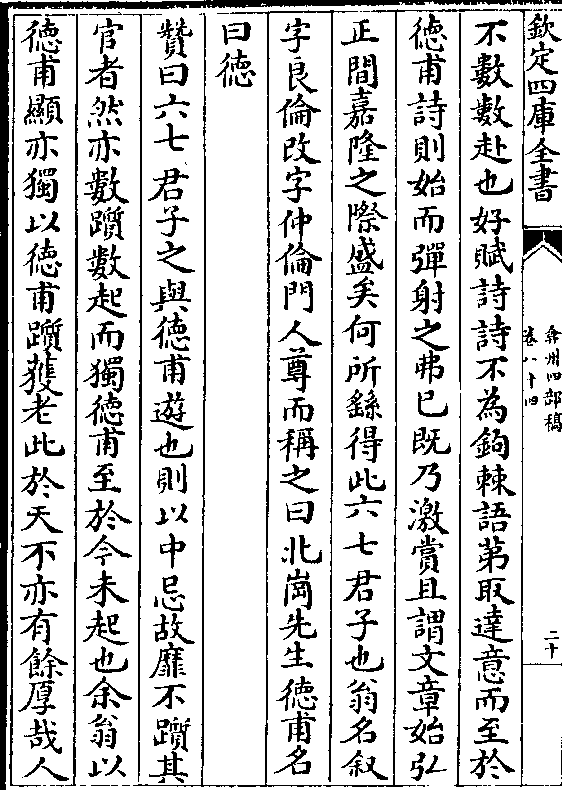 欽定四庫全書
弇州四部稿
卷八十四
二十
不數數赴也好賦詩詩不為鉤棘語苐取達意而至於
徳甫詩則始而彈射之弗已既乃激賞且謂文章始弘
正間嘉隆之際盛矣何所繇得此六七君子也翁名叙
字良倫改字仲倫門人尊而稱之曰北崗先生徳甫名
曰徳
贊曰六七君子之與徳甫遊也則以中忌故靡不躓其
官者然亦數躓數起而獨徳甫至於今未起也余翁以
徳甫顯亦獨以徳甫躓獲老此於天不亦有餘厚哉人